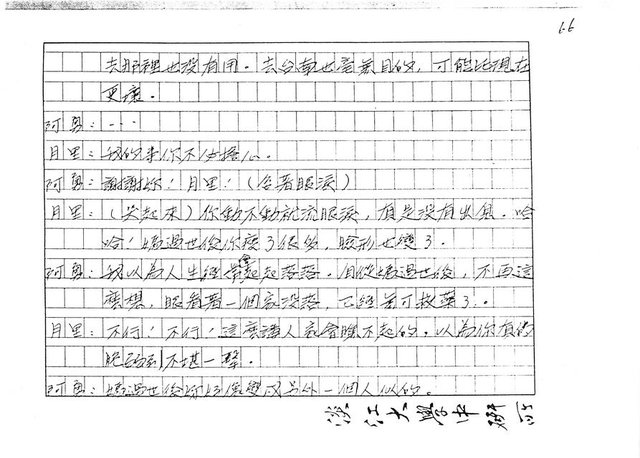 66
去那裡也沒有用。去台南也毫無目的，可能比現在
更壞。
阿勇：⋯
月里：我的事你不必擔心。
阿勇：謝謝你！月里！（含著眼淚）
月里：（笑起來）你動不動就流眼淚，真是沒有出息。哈
哈！媽過世後你瘦了很多，臉形也變了。
阿勇：我以為人生經常起起落落。自從媽過世後，不再這
麼想，眼看著一個家沒落，已經無可救藥了。
月里：不行！不行！這麼講人家會瞧不起的。以為你真的
脆弱到不堪一擊。
阿勇：媽過世後你好像變成另外一個人似的。
淡江大學中研所